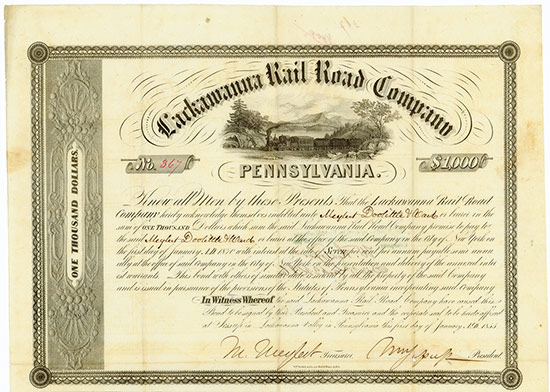 Lackawanna Rail Road Company
No. 367
$1,000
PENNSYLVANIA.
ONE THOUSAND DOLLARS.
Know all Men by these Presents That the Lackawanna Rail Road
Company hereby acknowledge themselves indebted unto Meylert Doolittle & Ward or bearer in the
sum of ONE THOUSAND Dollars which sum the said Lackawanna Rail Road Company promise to pay to
the said Meylert Doolittle & Ward or bearer at the office of the said Company in the City of New York on
the first day of January, AD 1870 with interest at the rate of Seven per cent per annum payable semi annu
ally at the office of said Company in the City of New York on the presentation and delivery of the annexed inter
est warrants. This Bond with others of similar date is secured by all the property of the said Company
and is issued in pursuance of the provisions of the Statutes of Pennsylvania incorporating said Company
In Witness Whereof the said Lackawanna Rail Road Company have caused this
Bond to be signed by their President and Treasurer and the corporate seal to be hereto affixed
at in Lackawanna Valley in Pennsylvania this first day of January, AD 1855
M. Meylert Treasurer President